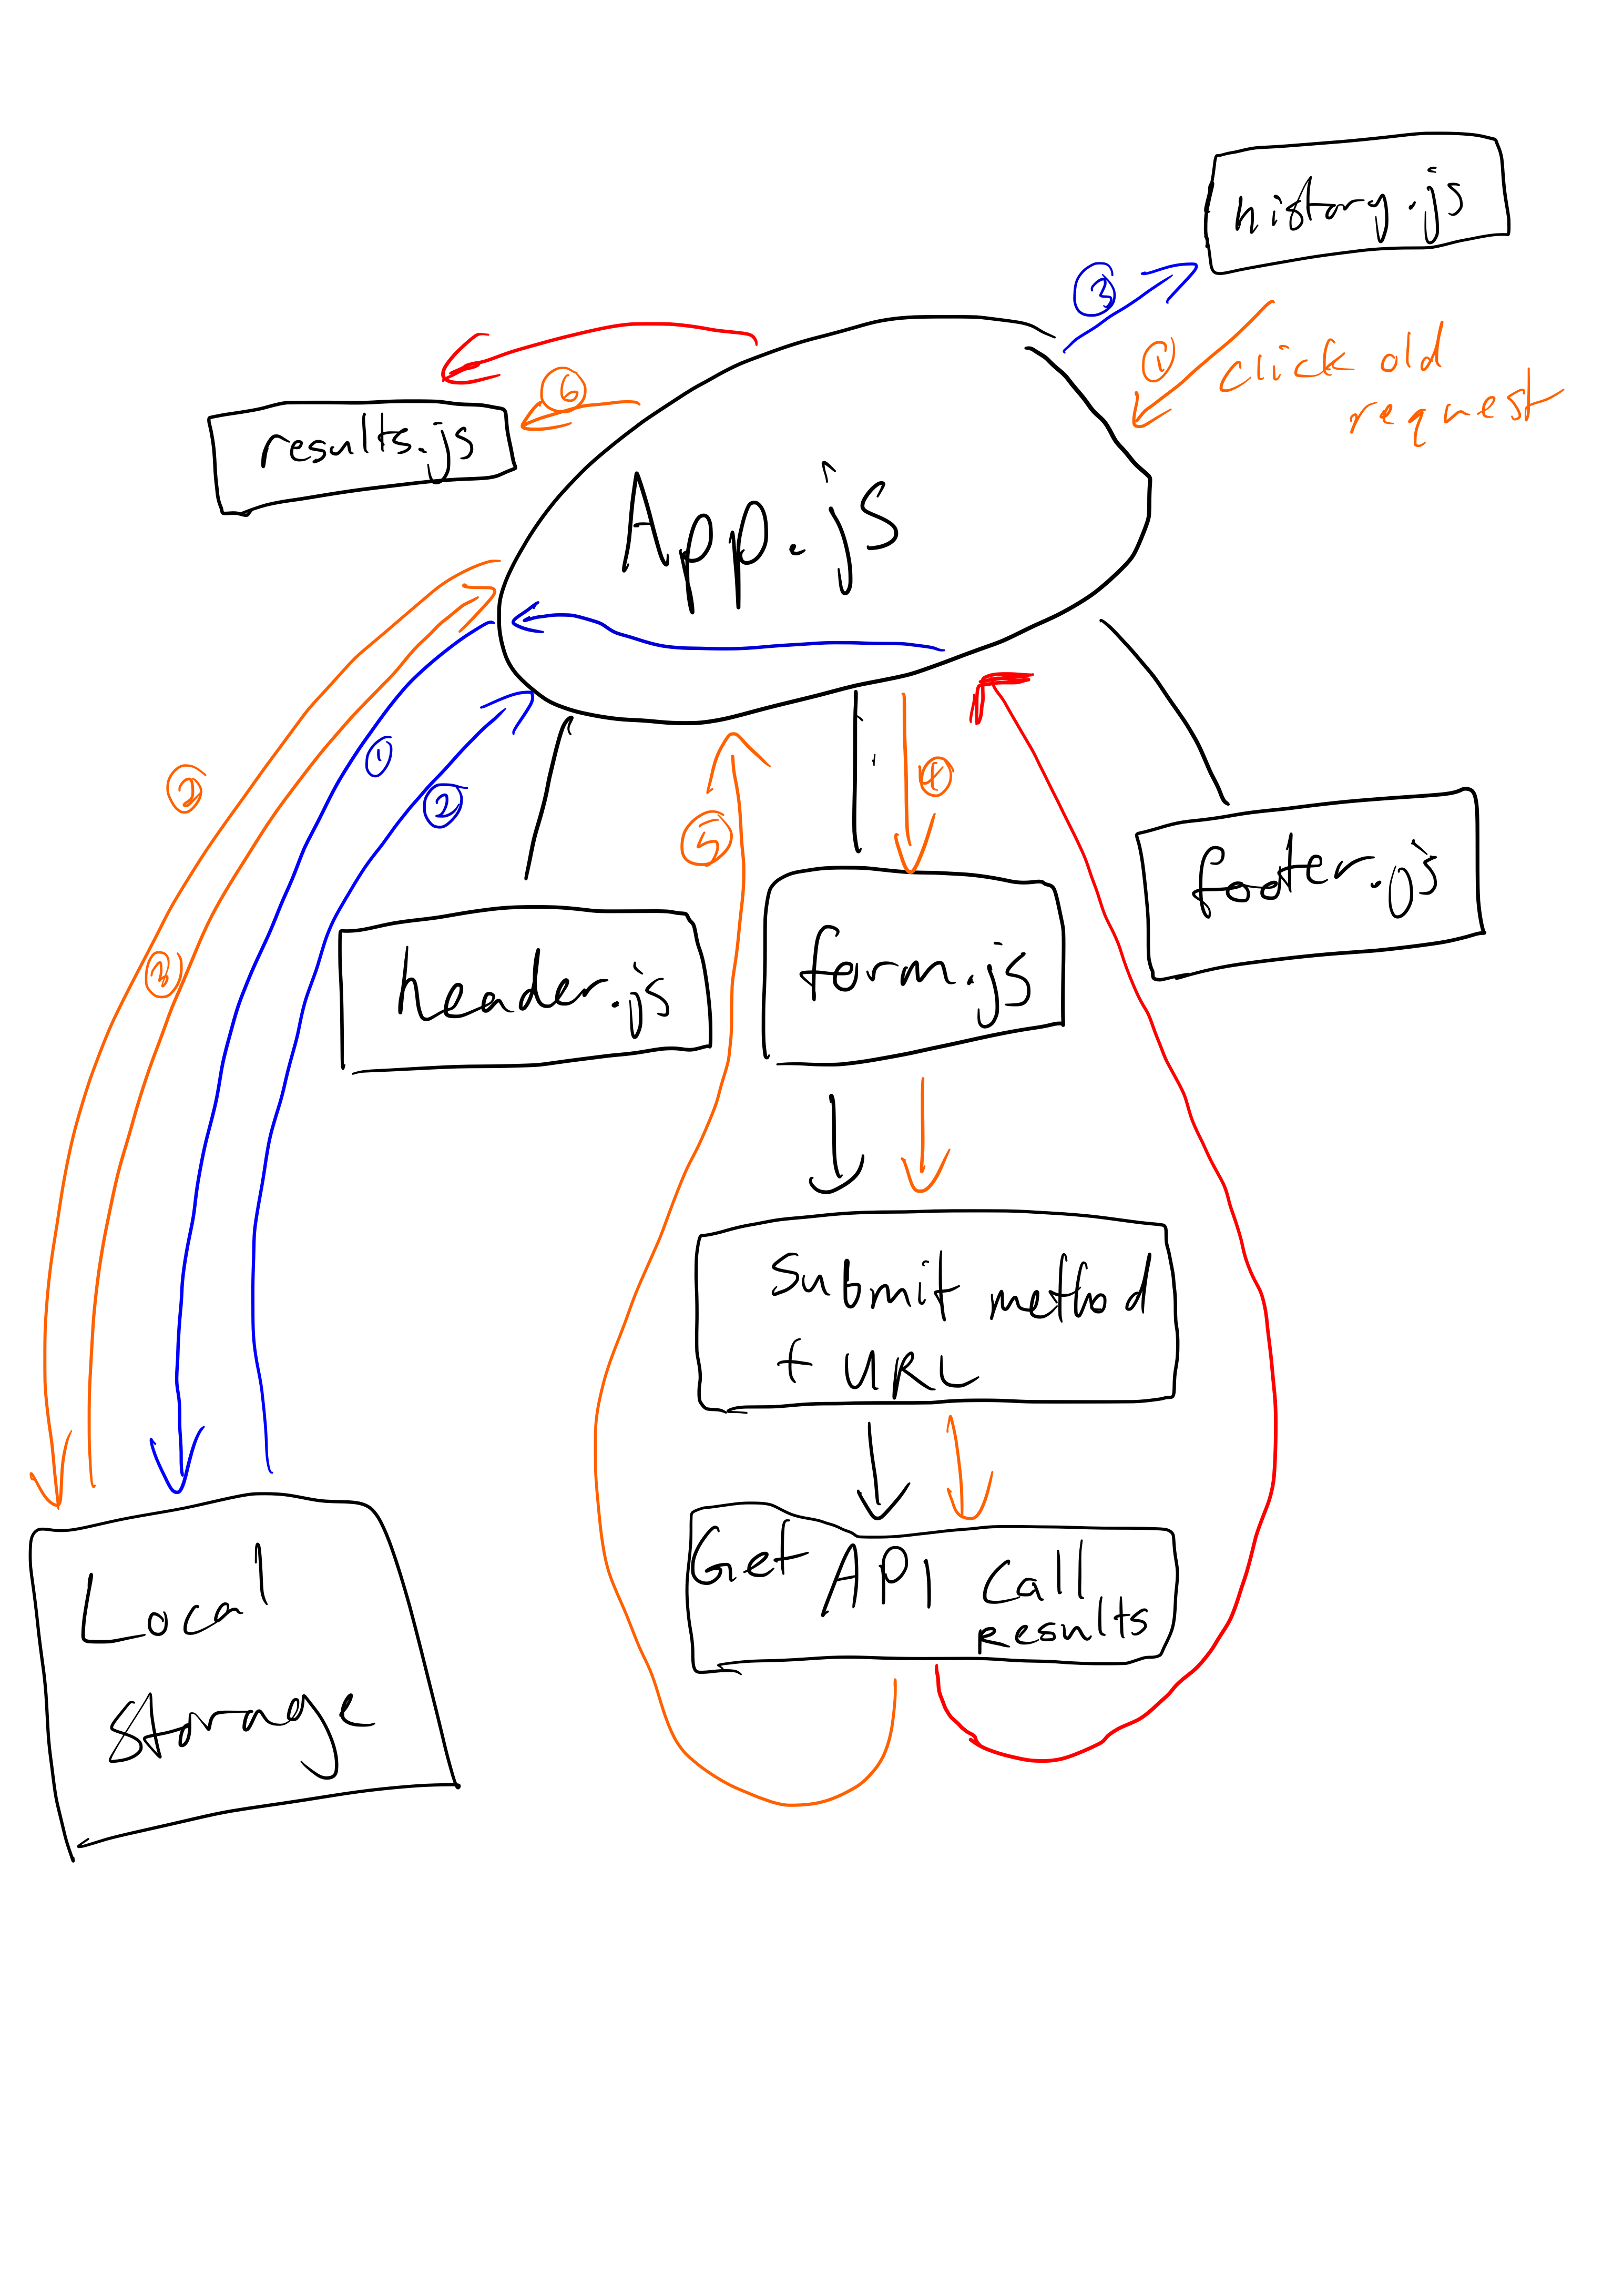 history.js
③
① click old
request
⑥
results.js
App.js
①
②
②
④
⑤
footer.js
③
header.js
form.js
Submit method
+ URL
Get API Call
results
Local
Storage